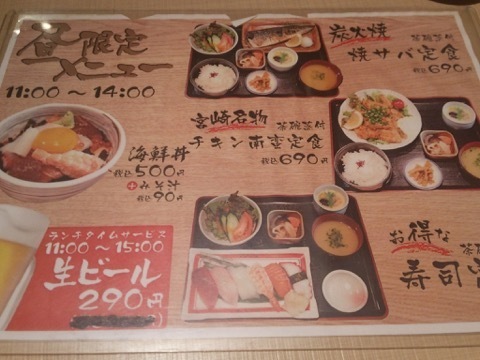 昼限定
メニュー
11:00 ～ 14:00
炭火焼
茶碗蒸付
焼サバ定食
税込690円
宮崎名物
茶碗蒸付
チキン南蛮定食
税込690円
海鮮丼
税込500円
+みそ汁
税込90円
ランチタイムサービス
11:00 ～ 15:00
生ビール
290円
お得な
茶碗
寿司定